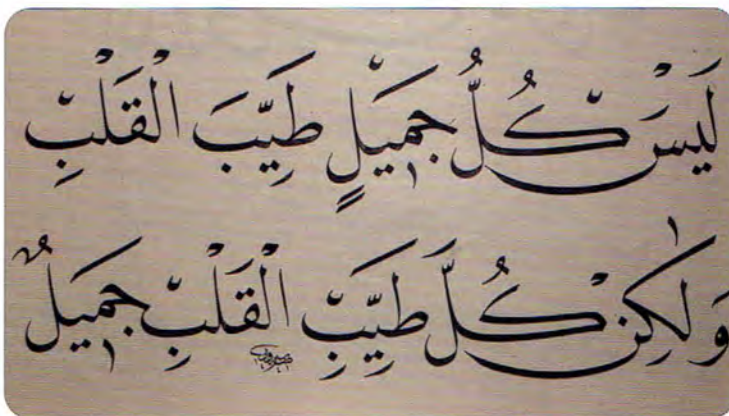 لَيْسَ كُلُّ جَمِيْلٍ طَيِّبَ الْقَلْبِ
وَلٰكِنْ كُلَّ طَيِّبِ الْقَلْبِ جَمِيْلٌ